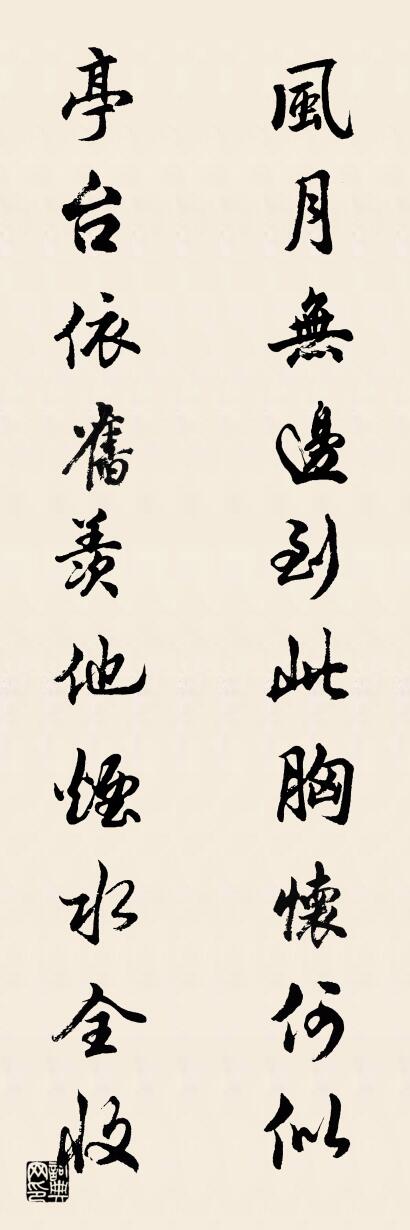 風月無邊到此胸懷何似
亭台依舊羨他煙水全收
詞典网印